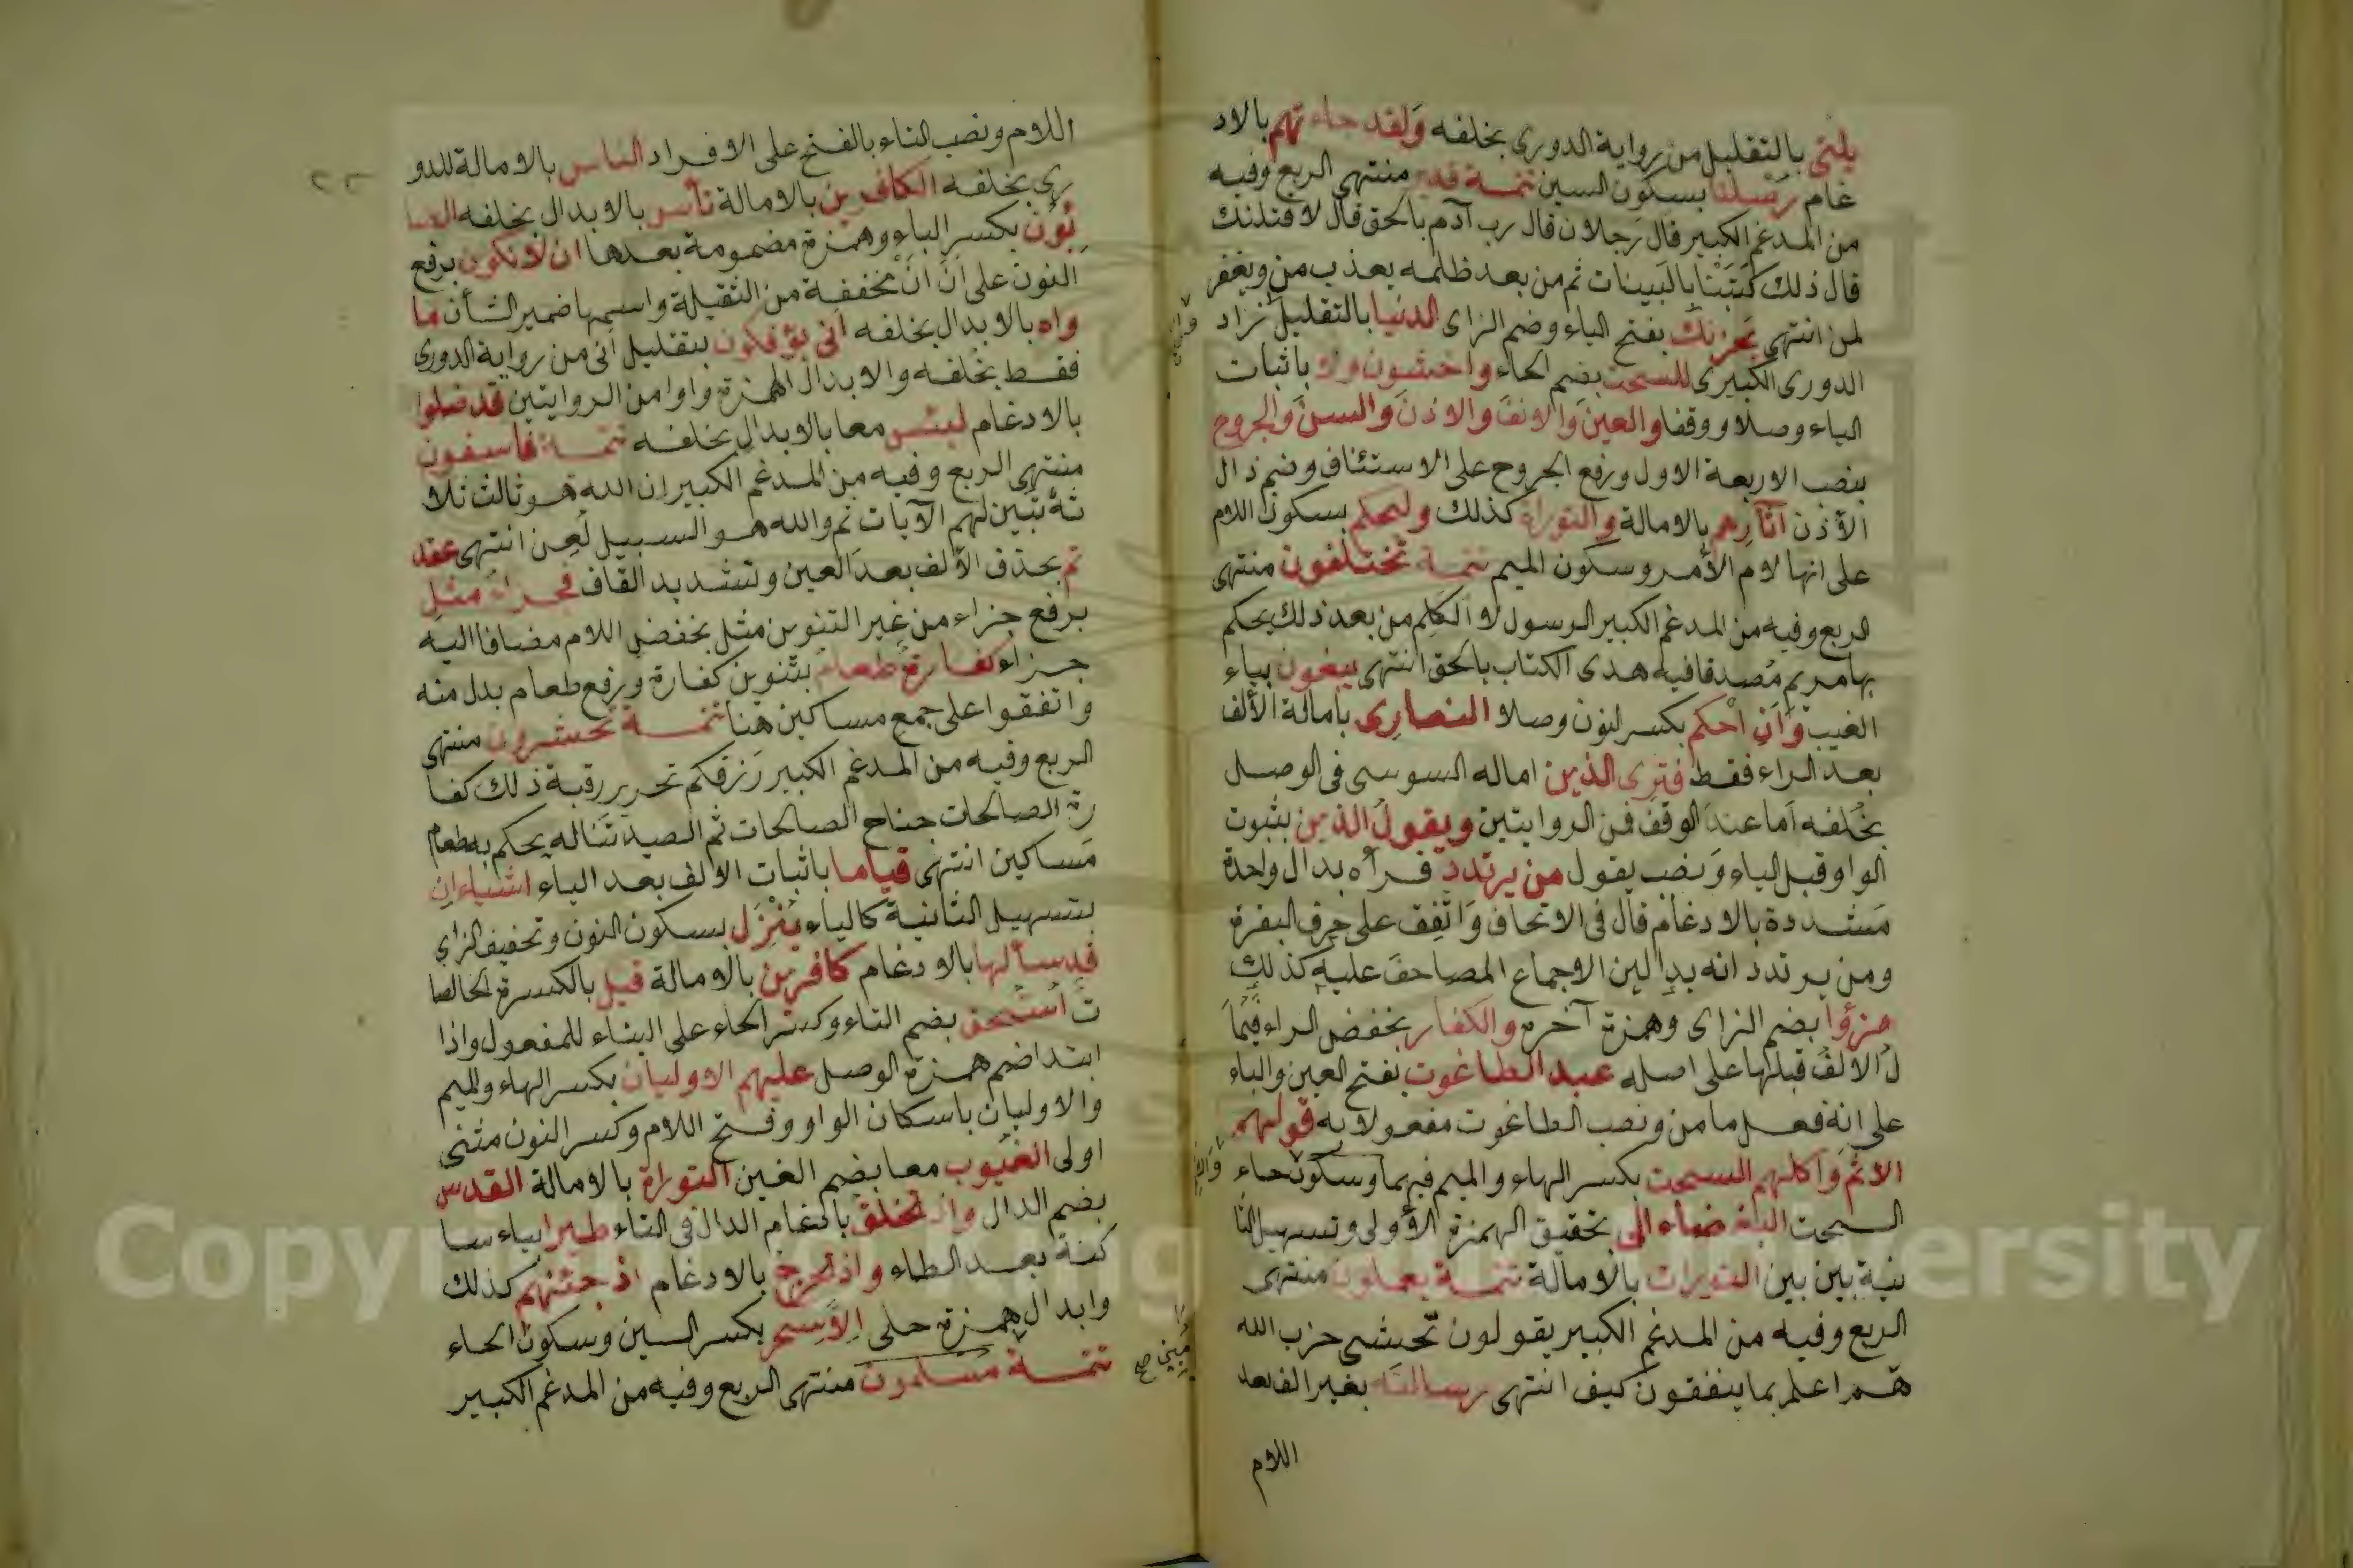 يلتى بالتقليل من رواية الدورى بخلفه ولقد جاء تهم بالاد
غام رسلنا بسكون السين تتمة قدير منتهى الربع وفيه
من المدغم الكبير قال رجلان قال رب آدم بالحق قال لاقتلنك
قال ذلك كتبنا بالبينات ثم من بعد ظلمه يعذب من ويغفر
لمن انتهى يحزنك بفتح الياء وضم الزاى الدنيا بالتقليل زاد
الدورى الكبرى للسحت بضم الحاء واخشون ولا باثبات
الياء وصلا ووقفا والعين والانف والاذن والسن والجروح
بنصب الاربعة الاول ورفع الجروح على الاستئناف وضم ذال
الأذن آثارهم بالامالة والتوراة كذلك وليحكم بسكون اللام
على انها لام الأمر وسكون الميم تتمة تختلفون منتهى
الربع وفيه من المدغم الكبير الرسول لا الكلم من بعد ذلك يحكم
بها مريم مصدقا فيه هدى الكتاب بالحق انتهى يبغون بياء
الغيب وان احكم بكسر لنون وصلا النصارى بامالة الألف
بعد الراء فقط فترى الذين اماله السوسى فى الوصل
بخلفه أما عند الوقف فن الروايتين ويقول الذين بثبوت
الواو قبل الياء ونصب يقول من يرتدد قرأه بدال واحدة
مشددة بالادغام قال فى الاتحاف واتفق على حرف البقرة
ومن يرتدد انه بدالين الاجماع المصاحف عليه كذلك
هزؤا بضم الزاى وهمزة آخره والكفار بخفض الراء فيما
ل الالف قبلها على اصله عبد الطاغوت بفتح العين والباء
على انه فعل مامن ونصب الطاغوت مفعولا به قولهم
الاثم وأكلهم السحت بكسر الهاء والميم فيهما وسكون حاء
السحت البغضاء الى بتحقيق الهمزة الأولى وتسهيل الثا
نية بين بين التورات بالامالة تتمة يعملون منتهى
الربع وفيه من المدغم الكبير يقولون تخشى حزب الله
هم اعلم بما ينفقون كيف انتهى رسالته بغير الف بعد
اللام
اللام ونصب التاء بالفتح على الافراد الناس بالامالة للدو
رى بخلفه الكافرين بالامالة تأس بالابدال بخلفه الصا
بؤن بكسر الباء وهمزة مضمومة بعدها ان لا تكون برفع
النون على أن أن مخففة من الثقيلة واسمها ضمير الشأن ما
واه بالابدال بخلفه أنى يؤفكون بتقليل أنى من رواية الدورى
فقط بخلفه والابدال الهمزة واوا من الروايتين قد ضلوا
بالادغام لبئس معا بالابدال بخلفه تتمة فاسقون
منتهى الربع وفيه من المدغم الكبير ان الله هو ثالث ثلا
ثة نبين لهم الآيات ثم والله هو السبيل لعن انتهى عقد
تم بحذف الألف بعد العين وتشديد القاف فجزاء مثل
برفع جزاء من غير التنوين مثل بخفض اللام مضافا اليه
جزاء كفارة طعام بتنوين كفارة ورفع طعام بدل منه
واتفقوا على جمع مساكين هنا تتمة تحشرون منتهى
الربع وفيه من المدغم الكبير رزقكم تحرير رقبة ذلك كفا
رة الصالحات جناح الصالحات ثم الصيد تناله يحكم به طعام
مساكين انتهى قياما باثبات الالف بعد الياء اشياء ان
بتسهيل الثانية كالياء ينزل بسكون النون وتخفيف الزاى
قد سألها بالادغام كافرين بالامالة قيل بالكسرة الخالصا
ت استحق بضم التاء وكسر الحاء على البناء للمفعول واذا
ابتدا ضم همزة الوصل عليهم الاوليان بكسر الهاء والميم
والاوليان باسكان الواو وفتح اللام وكسر النون مثنى
اولى الغيوب معا بضم الغين التوراة بالامالة القدس
بضم الدال واذ تخلق بادغام الدال فى التاء طيرا بياء سا
كنة بعد الطاء واذ تخرج بالادغام اذ جئتهم كذلك
وابدال همزة حلى الاسحر بكسر السين وسكون الحاء
تتمة مسلمون منتهى الربع وفيه من المدغم الكبير